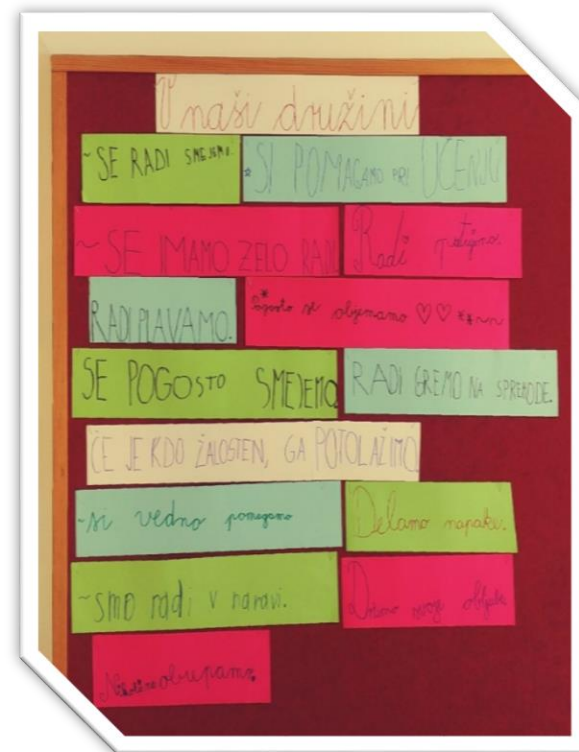 V naši družini
~SE RADI SMEJEMO. *SI POMAGAMO PRI UČENJU
~SE IMAMO ZELO RADI Radi potujemo.
RADI PLAVAMO. *Pogosto se objemamo ♡♡**~~
SE POGOSTO SMEJEMO. RADI GREMO NA SPREHODE.
ČE JE KDO ŽALOSTEN, GA POTOLAŽIMO.
-si vedno pomagamo Delamo napake.
~smo radi v naravi. Držimo svoje obljube
Nikoli ne obupamo.